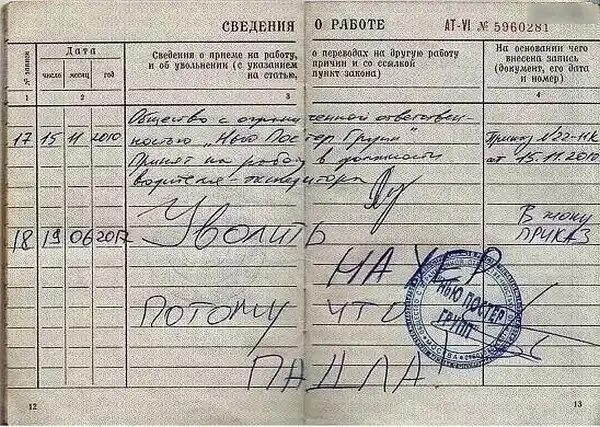 СВЕДЕНИЯ О РАБОТЕ АТ-VI № 5960281
№ записи
Дата
число месяц год
Сведения о приеме на работу, о переводах на другую работу
и об увольнении (с указанием причин и со ссылкой
на статью, пункт закона)
На основании чего
внесена запись
(документ, его дата
и номер)
1 2 3 4
Общество с ограниченной ответствен-
17 15 11 2010 ностью „Нью Постер Групп" Приказ №22-НК
Принят на работу в должности от 15.11.2010
водителя-экспедитора
18 19 06 2012 Уволить В жопу
ПРИКАЗ
НАХЕР
ПОТОМУ ЧТО
ПАДЛА!
НЬЮ ПОСТЕР
ГРУПП
12 13